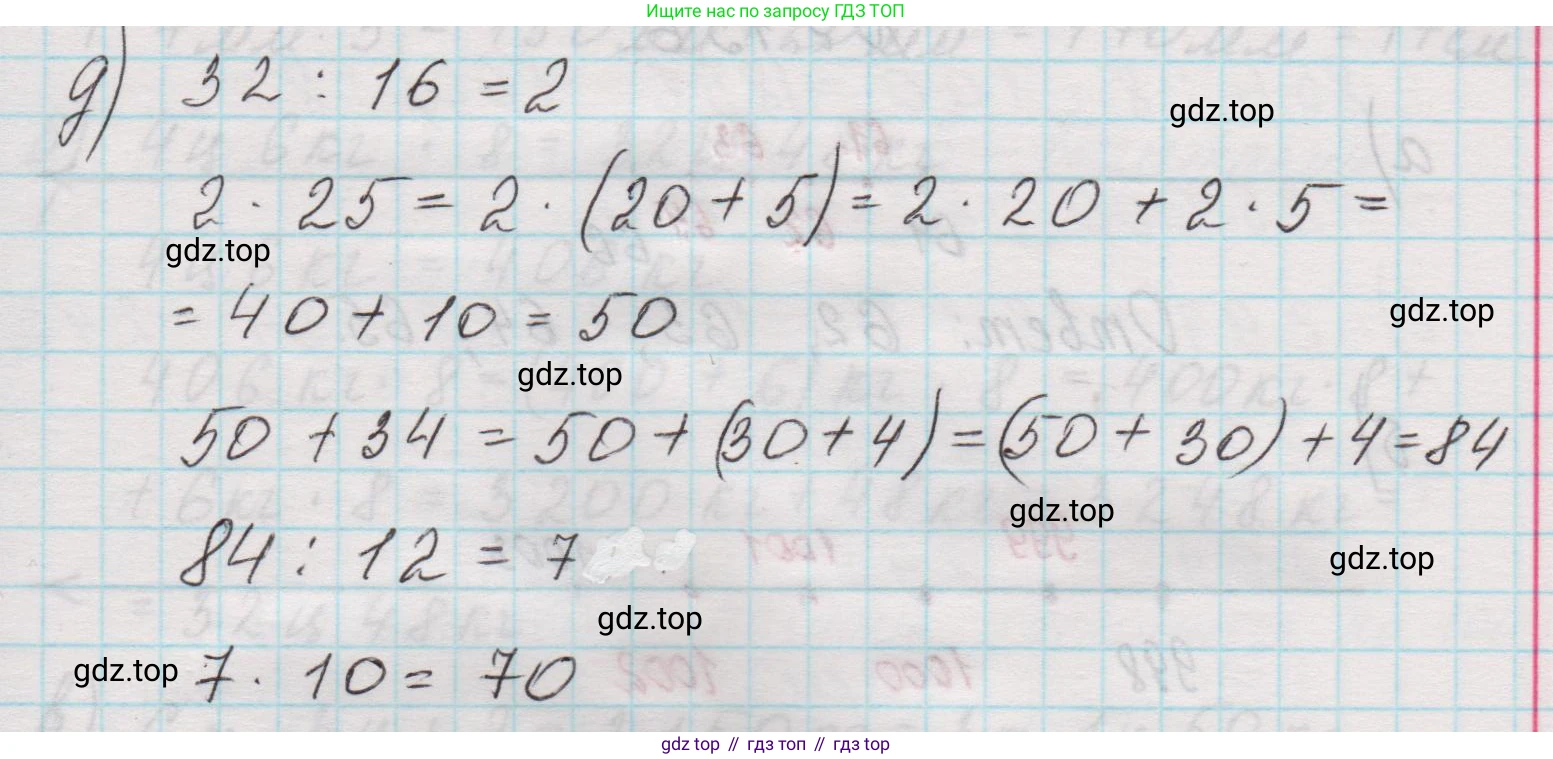 Ищите нас по запросу ГДЗ ТОП
д) 32 : 16 = 2
gdz.top
2 · 25 = 2 · (20 + 5) = 2 · 20 + 2 · 5 =
gdz.top
= 40 + 10 = 50
gdz.top
gdz.top
50 + 34 = 50 + (30 + 4) = (50 + 30) + 4 = 84
gdz.top
84 : 12 = 7
gdz.top
gdz.top
gdz.top
7 · 10 = 70
gdz top // гдз топ // гдз top